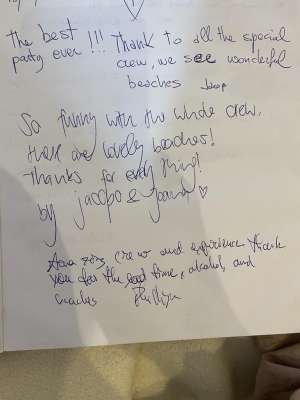 The best
party ever !!! Thank to all the special
crew, we see wonderful
beaches Jaap
So funny with the whole crew.
there are lovely beaches!
Thanks for everything!
by jacopo &
Amazing crew and experience thank
you for the good time, alcohol, and